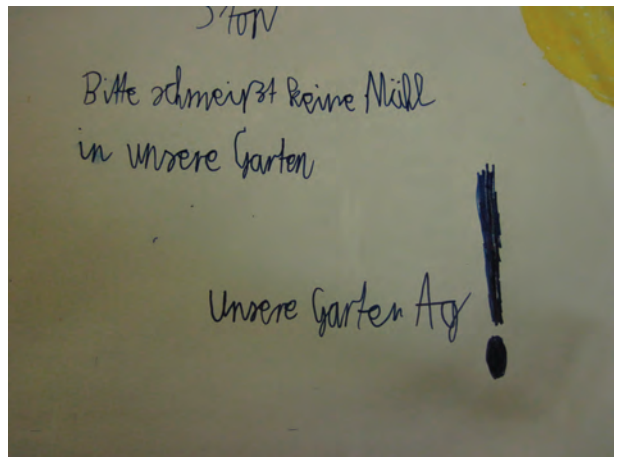 Stop
Bitte schmeißt keine Mühl
in unsere Garten
Unsere Garten Ag !